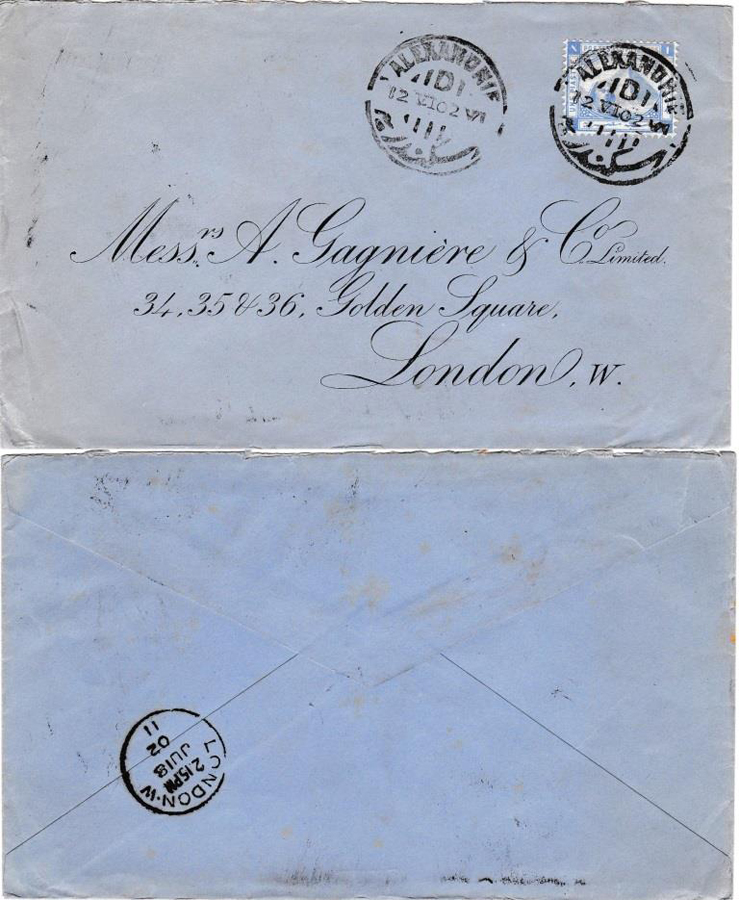 ALEXANDRIE
12 VI 02
ALEXANDRIE
12 VI 02
Messrs. A. Gagnière & Co. Limited.
34, 35 & 36, Golden Square,
London, W.
LONDON·W
2.15PM
JU18
02
11